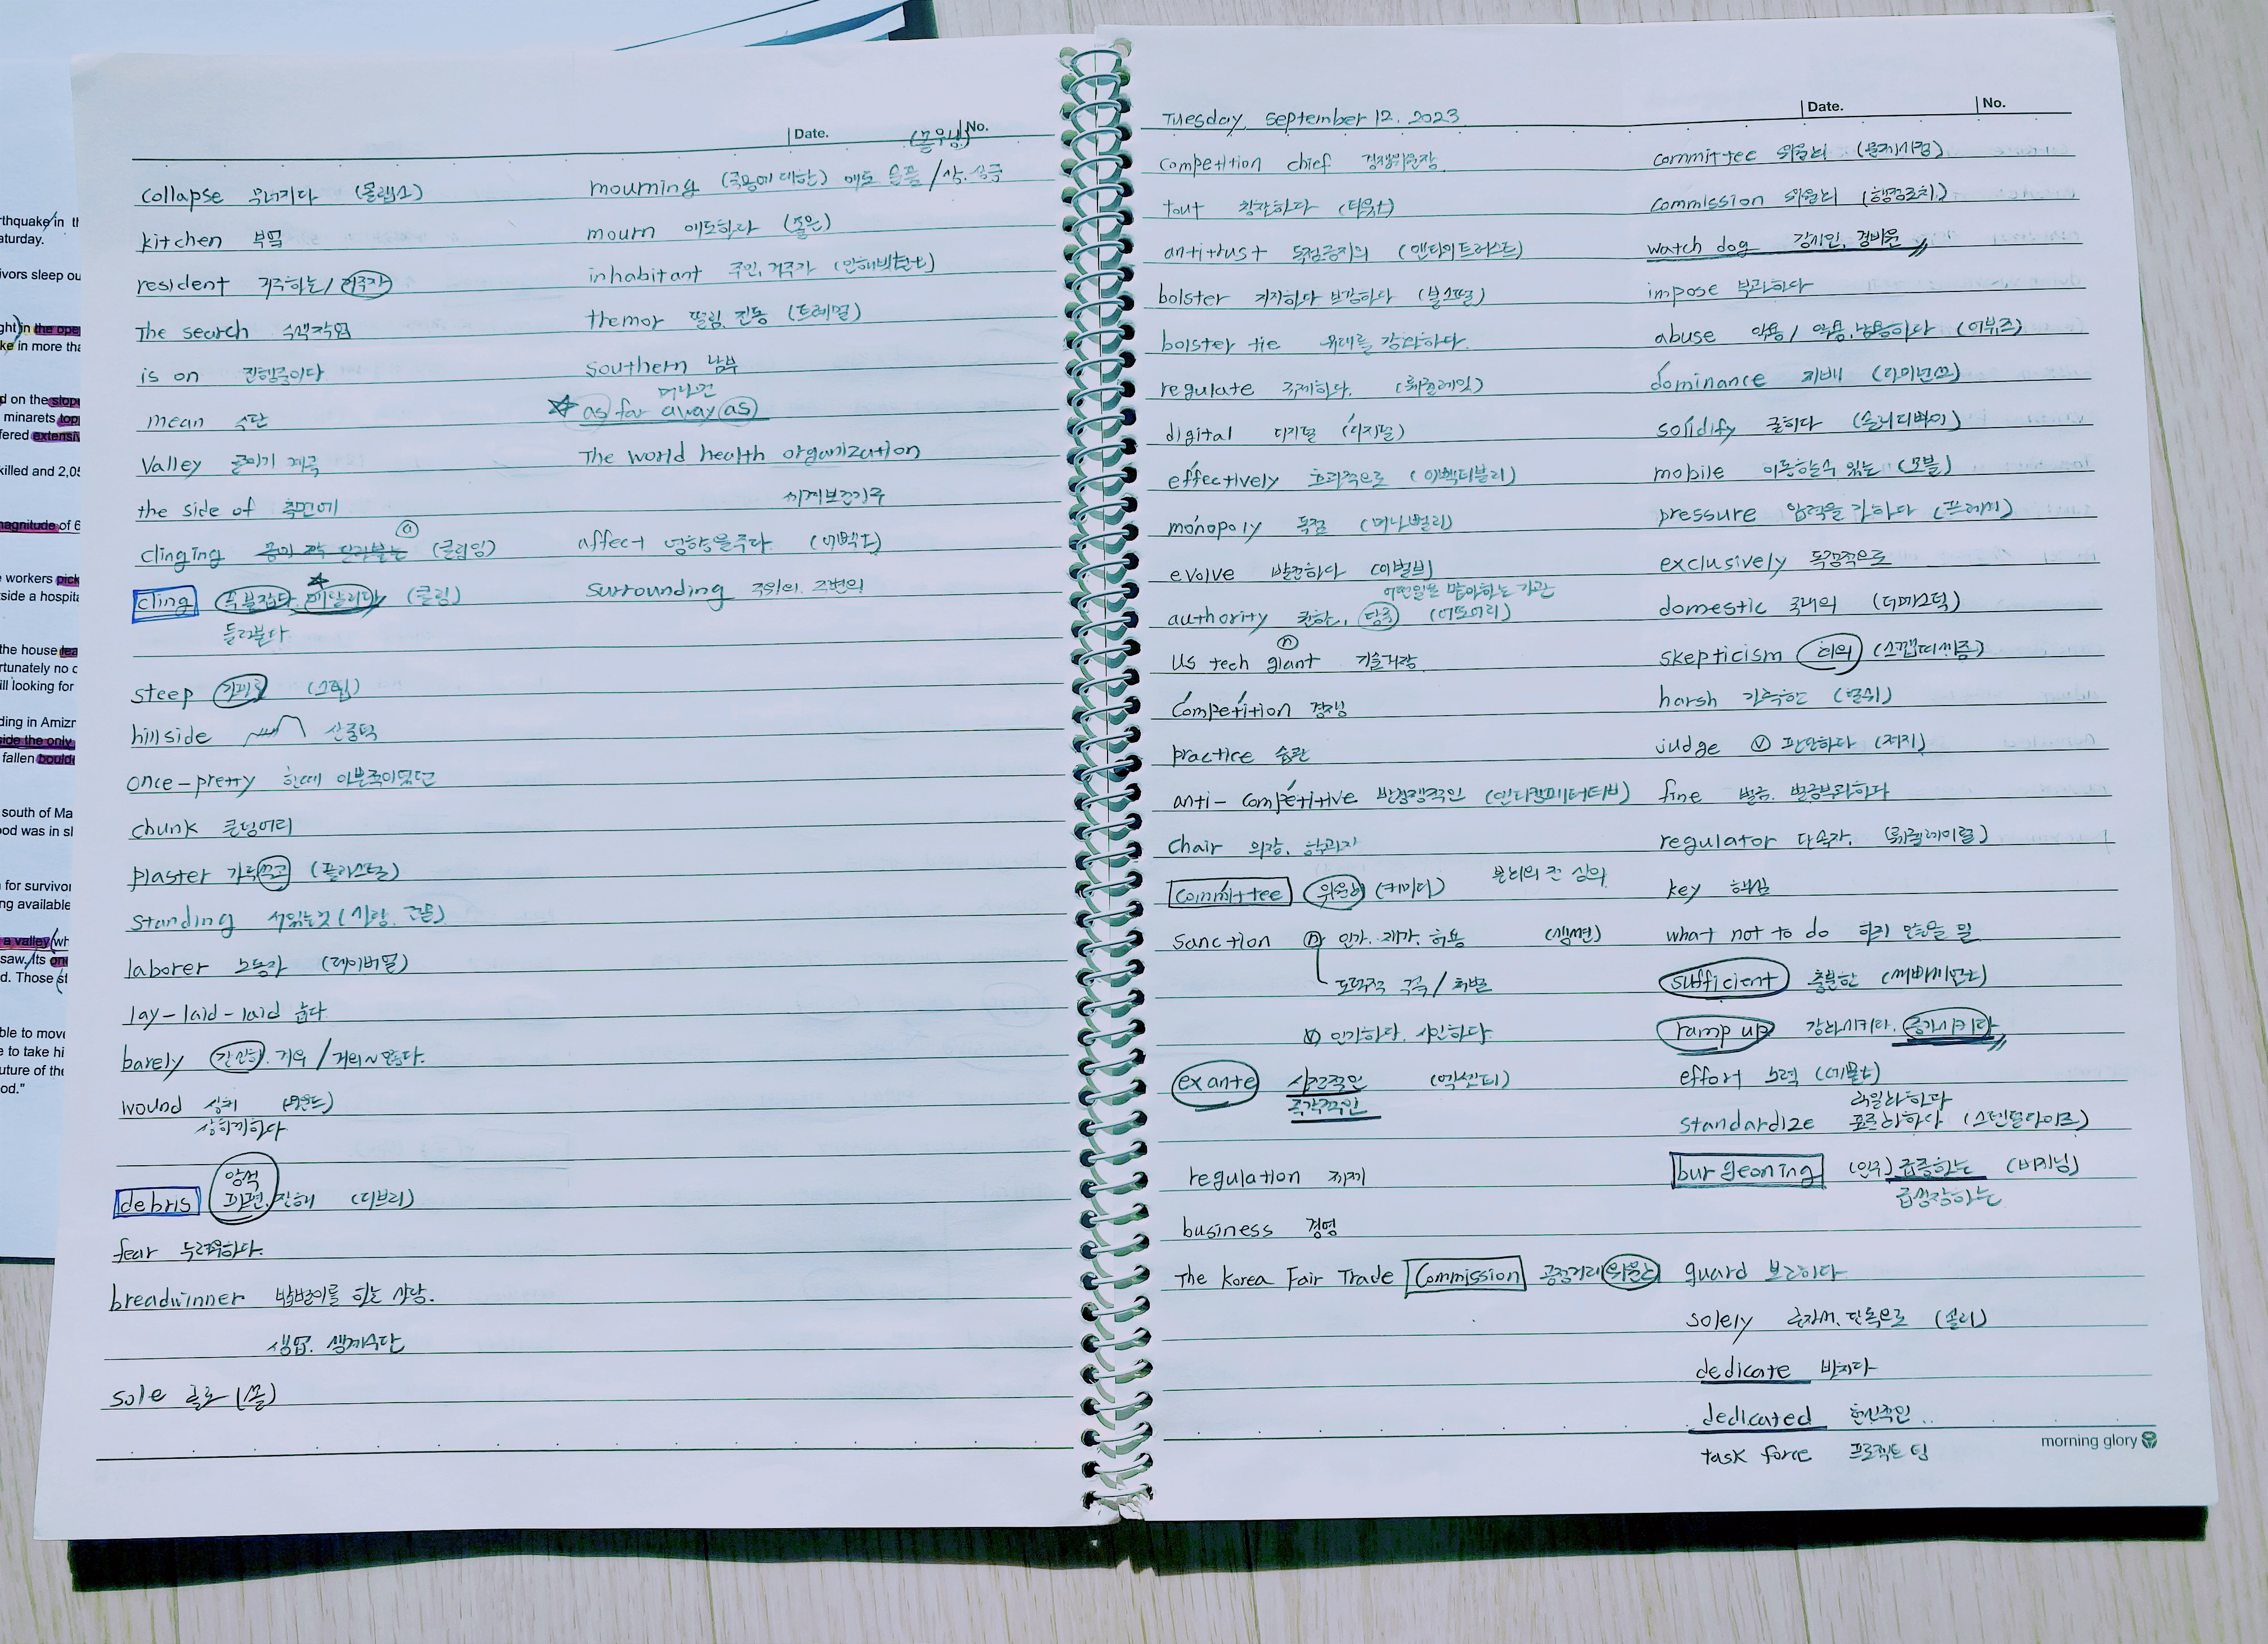 rthquake in th
aturday.
ivors sleep ou
ght) in the ope
ke in more tha
d on the slope
minarets top
fered extensiv
killed and 2,05
magnitude of 6
workers pick
side a hospita
the house lea
rtunately no c
ill looking for
ding in Amizn
side the only
fallen bould
south of Ma
ood was in sl
for survivor
ng available
a valley wh
saw. Its on
d. Those st
ble to move
e to take hi
uture of the
od."
Date. No.
collapse 무너지다 (콜랩스)
kitchen 부엌
resident 거주하는/거주자
The search 수색작업
is on 진행중이다
mean 수단
Valley 골짜기 계곡
the side of 측면에
clinging (클링잉)
cling 꼭 붙잡다, 매달리다 (클링)
들러붙다
steep 가파른 (스팁)
hillside 산중턱
once-pretty 한때 아름다웠던
chunk 큰덩어리
plaster 가루석고 (플라스털)
standing 서있는것 (사람, 건물)
laborer 노동자 (레이버럴)
lay-laid-laid 눕다
barely 간신히, 겨우 / 거의~않다.
wound 상처 (운드)
상처기하다
암석
debris 파편, 잔해 (디브리)
fear 두려워하다.
breadwinner 밥벌이를 하는 사람.
생업. 생계수단
sole 홀로 (쏠)
(몰우닝)
mourning (죽음에 대한) 애도 슬픔 /
mourn 애도하다
inhabitant 주민, 거주자 (인해비턴트)
themor 떨림, 진동 (트레멀)
southern 남부
머나먼
as far away as
The world health organization
세계보건기구
affect 영향을주다. (어펙트)
surrounding 주위의, 주변의
Date. No.
Tuesday, September 12, 2023
competition chief 경쟁위원장
tout 칭찬하다 (타우트)
antitrust 독점금지의 (앤티트러스트)
bolster 지지하다 보강하다 (볼스털)
bolster tie 유대를 강화하다.
regulate 규제하다. (뤠귤레잇)
digital 디지털 (디지털)
effectively 효과적으로 (이펙티블리)
monopoly 독점 (머나펄리)
evolve 발전하다 (이벌브)
어떤일을 맡아하는 기관
authority 권한, 당국 (어또어리)
US tech giant ⓝ 기술거장
competition 경쟁
practice 습관
anti-competitive 반경쟁적인 (앤티컴페터티브)
chair 의장, 학과장
committee 위원회 (커미티)
sanction ⓝ 인가, 제가, 허용 (생션)
도덕적 구속/처벌
ⓥ 인가하다, 시인하다
exante 사전적인 (엑센티)
즉각적인
regulation 규제
business 경영
The Korea Fair Trade Commission 공정거래위원회
committee 위원회 (문제시점)
commission 위원회 (행정조치)
watch dog 감시인, 경비원
impose 부과하다
abuse 악용/ 악용, 남용하다 (어뷰즈)
dominance 지배 (다미넌쓰)
solidify 굳히다 (솔리디퐈이)
mobile 이동할수 있는 (모블)
pressure 압력을 가하다 (프레셔)
exclusively 독점적으로
domestic 국내의 (더매스틱)
skepticism 회의 (스껩띠씨즘)
harsh 가혹한 (할쉬)
judge ⓥ 판단하다 (저지)
fine 벌금, 벌금부과하다
regulator 단속자. (뤠귤레이럴)
key 핵심
what not to do 하지 말아야 할
sufficient 충분한 (써퍼씨먼트)
ramp up 강화시키다, 증가시키다
effort 노력 (에폴트)
획일화하다
standardize 표준화하다 (스탠덜다이즈)
burgeoning (인구) 급증하는 (버지닝)
급성장하는
guard 보호하다
solely 혼자서, 단독으로 (솔리)
dedicate 바치다
dedicated 헌신적인
task force 프로젝트 팀
morning glory